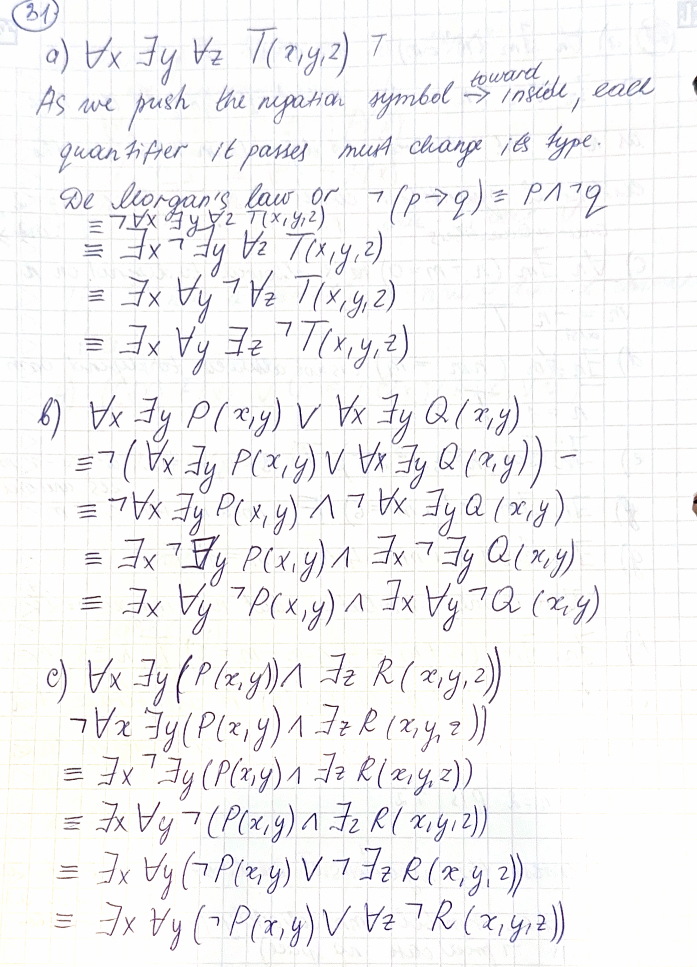 31)
a) ∀x ∃y ∀z T(x,y,z) T
As we push the negation symbol toward → inside, each
quantifier it passes must change its type.
De Morgan's law or ¬(p→q) ≡ p∧¬q
≡ ¬∀x ∃y ∀z T(x,y,z)
≡ ∃x ¬∃y ∀z T(x,y,z)
≡ ∃x ∀y ¬∀z T(x,y,z)
≡ ∃x ∀y ∃z ¬T(x,y,z)
b) ∀x ∃y P(x,y) ∨ ∀x ∃y Q(x,y)
≡ ¬(∀x ∃y P(x,y) ∨ ∀x ∃y Q(x,y)) –
≡ ¬∀x ∃y P(x,y) ∧ ¬∀x ∃y Q(x,y)
≡ ∃x ¬∃y P(x,y) ∧ ∃x ¬∃y Q(x,y)
≡ ∃x ∀y ¬P(x,y) ∧ ∃x ∀y ¬Q(x,y)
c) ∀x ∃y(P(x,y)) ∧ ∃z R(x,y,z))
¬∀x ∃y(P(x,y) ∧ ∃z R(x,y,z))
≡ ∃x ¬∃y(P(x,y) ∧ ∃z R(x,y,z))
≡ ∃x ∀y ¬(P(x,y) ∧ ∃z R(x,y,z))
≡ ∃x ∀y(¬P(x,y) ∨ ¬∃z R(x,y,z))
≡ ∃x ∀y(¬P(x,y) ∨ ∀z ¬R(x,y,z))